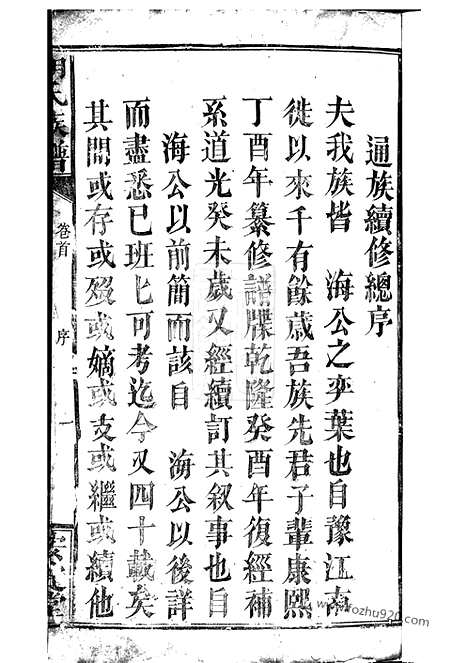 通族續修總序
夫我族皆　海公之奕葉也自豫江南
徙以來千有餘歲吾族先君子輩康熙
丁酉年纂修譜牒乾隆癸酉年復經補
系道光癸未歲又經續訂其敘事也自
海公以前簡而該自　海公以後詳
而盡悉已班匕可考迄今又四十載矣
其間或存或歿或嫡或支或繼或續他
氏族譜
卷首
序
一
堂
www.fozhu920.com